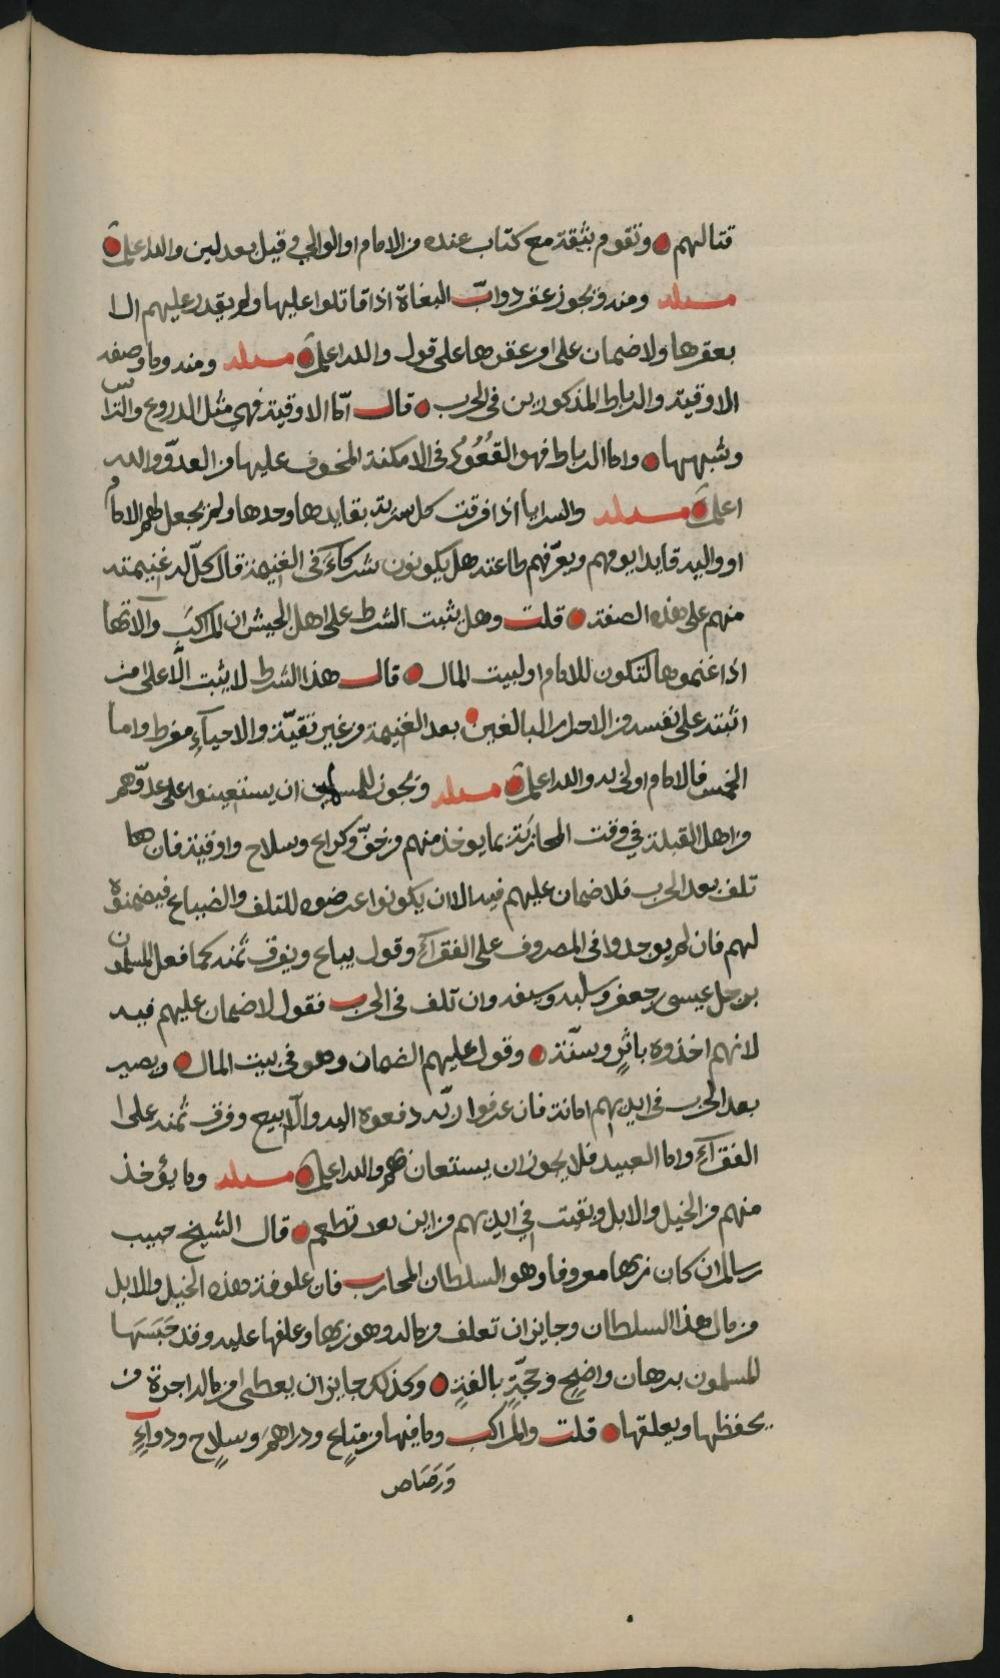 قتالهم وتقوم بثقة مع كتاب عنده من الامام او الوالي في قيل بعدلين والله اعلم
مسئله ومنه ويجوز عقر دوابّ البغاة اذا قاتلوا عليها ولم يقدر عليهم الا
بعقرها ولا ضمان على من عقرها على قول والله اعلم مسئله ومنه وما وصفه
الاوقية والرباط المذكورين في الحرب قال امّا الاوقية فهي مثل الدروع والتراس
وشبهها واما الرباط فهو القُعُود في الامكنة المخوف عليها من العدوّ والله
اعلم مسئله والسرايا اذا فرقت كل سرية بقايدها وحدها ولم يجعل لهم الامام
او واليه قايدا يومهم ويعرّفهم طاعته هل يكونون شركاءَ في الغنيمة قال كلّ له غنيمته
منهم على هذه الصفة قلت وهل يثبت الشرط على اهل الجيش ان المراكبَ وآلاتها
اذا غنموها لتكون للامام او لبيت المال قال هذا الشرط لا يثبت الّا على من
اثبته على نفسه من الاحرار البالغين بعد الغنيمة من غير تقيّة والاحياءِ مفرط واما
الخمس فالامام اولى به والله اعلم مسئله ويجوز للمسلمين ان يستعينوا على عدوّهم
من اهل القبلة في وقت المحاربَة بما يوخذ منهم من حقّ وكراع وسلاح واوقية فان ما
تلف بعد الحرب فلا ضمان عليهم فيه الا ان يكونوا عرضوه للتلف والضياع فيضمنوه
لهم فان لم يوجدوا في المصروف على الفقرآءِ وقول يباع ويفرق ثمنه كما فعل المسلمون
برحل عيسى بن جعفر وسلبه وسيفه وان تلف في الحرب فقول لا ضمان عليهم فيه
لانهم اخذوه باثرٍ وسنّة وقول عليهم الضمان وهو في بيت المال ويصير
بعد الحرب في ايديهم امانة فان عرفوا ربّه دفعوه اليه والّا بيع وفرق ثمنه على ا
الفقرآءِ واما العبيد فلا يجوز ان يستعان بهم والله اعلم مسئله وما يؤخذ
منهم من الخيل والابل وبقيت في ايديهم من اين تطعم قال الشيخ حبيب
بن سالم ان كان ربها معروفا وهو السلطان المحارب فان علوفة هذه الخيل والابل
من مال هذا السلطان وجايز ان تعلف من ماله وهو ربها وعلفها عليه وقد حَبَسَها
المسلمون ببرهان واضِحٍ وحجّةٍ بالغةٍ وكذلك جايز ان يعطى من ماله اجرة من
يحفظها ويعلفها قلت والمراكب وما فيها من متاعٍ ودراهمَ وسلاحٍ ودوآءٍ
وَرَصَاص